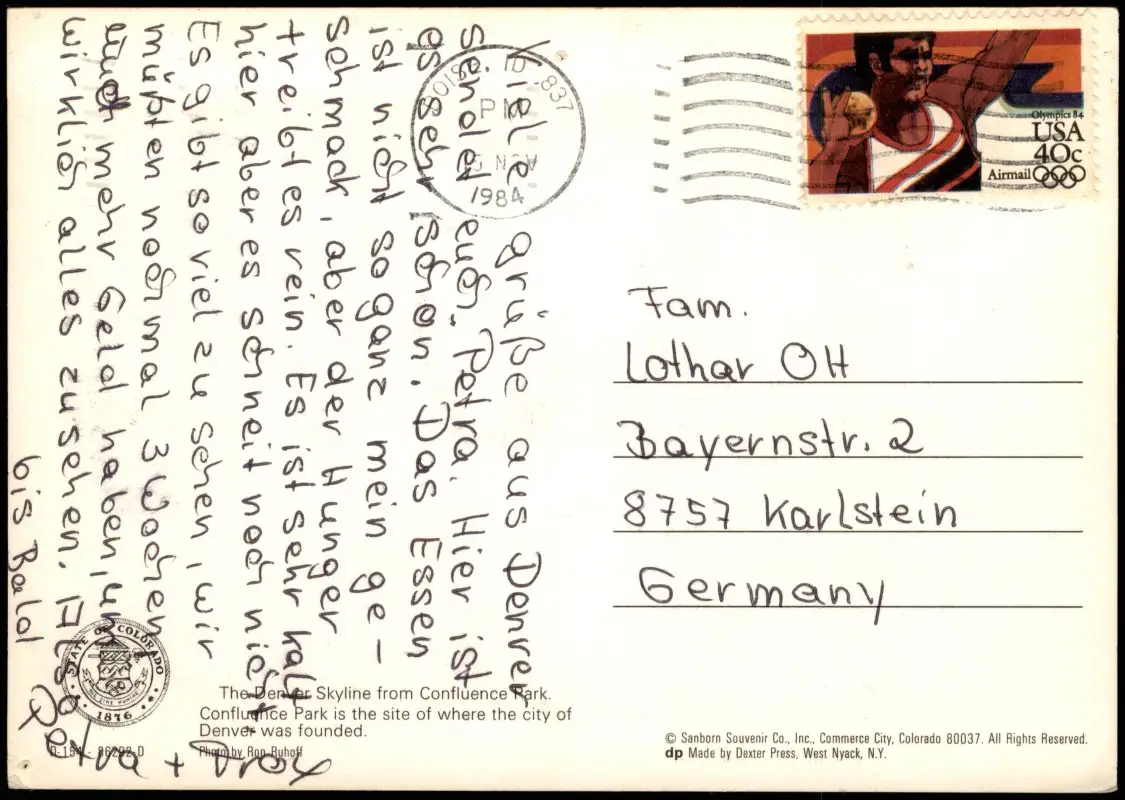 Viele grüße aus Denver
sendet euch. Petra. Hier ist
es sehr schön. Das Essen
ist nicht so ganz mein ge-
schmack, aber der Hunger
treibt es rein. Es ist sehr kalt
hier aber es schneit noch nicht
Es gibt so viel zu sehen, wir
müßten nochmal 3 Wochen
mehr Geld haben, um
wirklich alles zu sehen. Also
bis Bald
Petra +
837
PM
NOV
1984
Olympics 84
USA
40c
Airmail
Fam.
Lothar Ott
Bayernstr. 2
8757 Karlstein
Germany
STATE OF COLORADO
1876
The Denver Skyline from Confluence Park.
Confluence Park is the site of where the city of
Denver was founded.
Photo by Ron Ruhoff
© Sanborn Souvenir Co., Inc., Commerce City, Colorado 80037. All Rights Reserved.
dp Made by Dexter Press, West Nyack, N.Y.